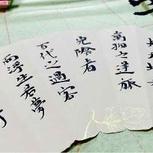 萬物之逆旅
光陰者
百代之過客
而浮生若夢